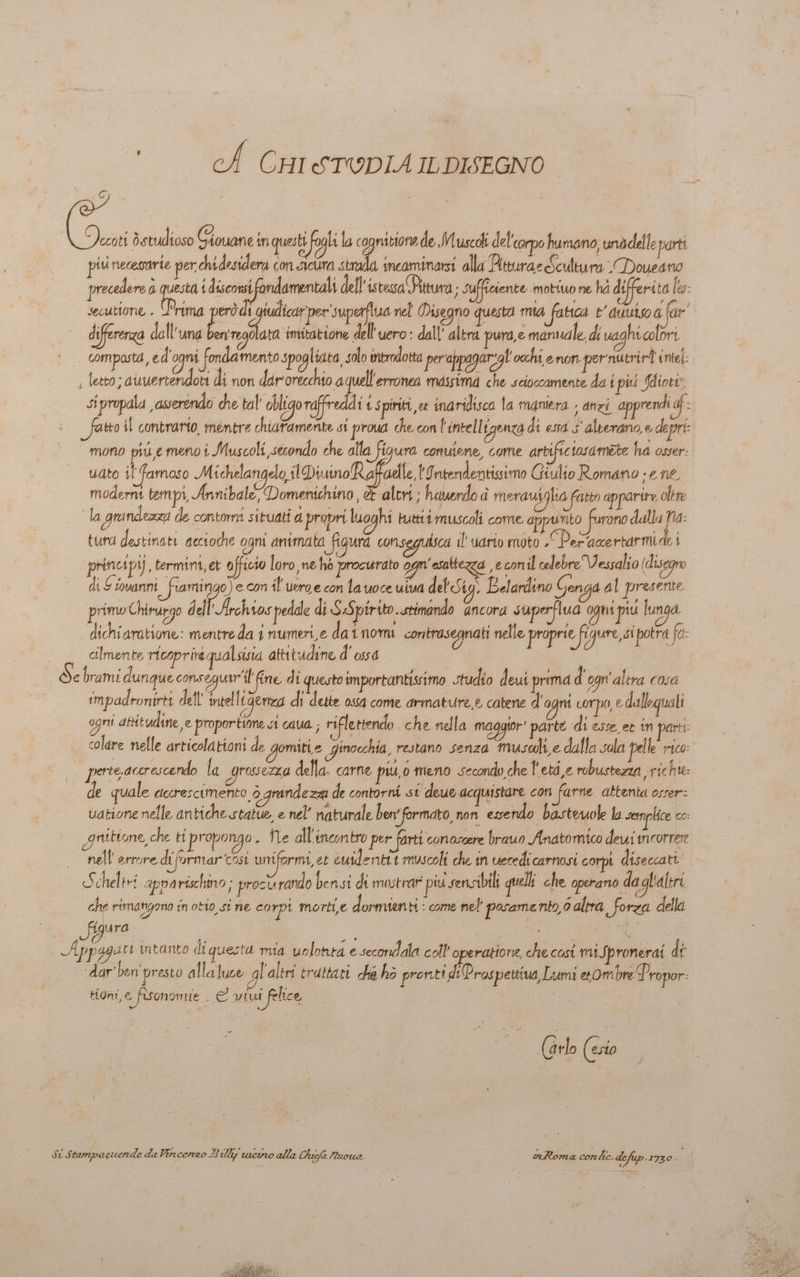 A CHI STVDIA IL DISEGNO
Eccoti ò studioso Giouane in questi fogli la cognitione de Muscoli del'corpo humano, una delle parti
più necessarie per chi desidera con sicura strada incaminarsi alla Pittura, e Scultura. Doueano
precedere à questa i discorsi fondamentali dell'istessa Pittura; sufficiente motiuo ne hà differita l'es:
secutione. Prima però di giudicar per'superflua nel Disegno questa mia fatica t'auuiso à far'
differenza dall'una ben'regolata imitatione dell'uero: dall'altra pura, e manuale, di uaghi colori
composta, ed'ogni fondamento spogliata, solo introdotta per'appagar'gl'occhi, e non per'nutrir l'intel:
letto; auuertendoti di non dar'orecchio a quell'erronea massima che scioccamente da i più Idioti
si propala, asserendo che tal'obligo raffreddi i spiriti, et inaridisca la maniera; anzi apprendi af:
fatto il contrario, mentre chiaramente si proua che con l'intelligenza di essa s'alterano, e depri:
mono più, e meno i Muscoli, secondo che alla figura conuiene, come artificiosamẽte ha osser:
uato il famoso Michelangelo, il Diuino Raffaelle, l'Intendentissimo Giulio Romano; e ne
moderni tempi, Annibale, Domenichino, & altri; hauendo à merauiglia fatto apparire, oltre
la grandezza de contorni situati à propri luoghi tutti i muscoli come appunto furono dalla Na:
tura destinati accioche ogni animata figura conseguisca il'uario moto. Per'accertarmi de i
principij, termini, et officio loro, ne hò procurato ogn'esattezza, e con il celebre Vessalio (disegno
di Giouanni fiamingo) e con il'uero, e con la uoce uiua del'Sig.r Belardino Genga al presente
primo Chirurgo dell'Archiospedale di S.Spirito. stimando ancora superflua ogni più lunga
dichiaratione: mentre da i numeri, e da i nomi contrasegnati nelle proprie figure, si potrà fa:
cilmente ricoprire qualsisia attitudine d'ossa
Se brami dunque conseguir'il fine di questo importantissimo studio deui prima d'ogn'altra cosa
impadronirti dell'intelligenza di dette ossa come armature, e catene d'ogni corpo, e dallequali
ogni attitudine, e proportione si caua; riflettendo che nella maggior'parte di esse, et in parti:
colare nelle articolationi de gomiti, e ginocchia, restano senza muscoli, e dalla sola pelle rico:
perte, accrescendo la grossezza della carne più, ò meno secondo che l'età, e robustezza, richie:
de quale accrescimento, ò grandezza de contorni si deue acquistare con farne attenta osser:
uatione nelle antiche statue, e nel' naturale ben'formato, non essendo basteuole la semplice co:
gnitione, che ti propongo. Ne all'incontro per farti conoscere brauo Anatomico deui incorrere
nell'errore di formar'così uniformi, et euidenti i muscoli che in uece di carnosi corpi diseccati
Scheltri apparischino; procurando bensi di mostrar più sensibili quelli che operano da gl'altri
che rimangono in otio, si ne corpi morti, e dormienti: come nel' posamento, ò altra forza della
figura
Appagati intanto di questa mia uolontà e secondala coll'operatione, che così mi spronerai di
dar'ben presto alla luce gl'altri trattati che hò pronti di Prospettiua, Lumi et Ombre Propor:
tioni, e fisonomie. E viui felice
Carlo Cesio
Si Stampa e uende da Vincenzo Billy uicino alla Chiesa Nuoua
in Roma con lic. de sup. 1730.